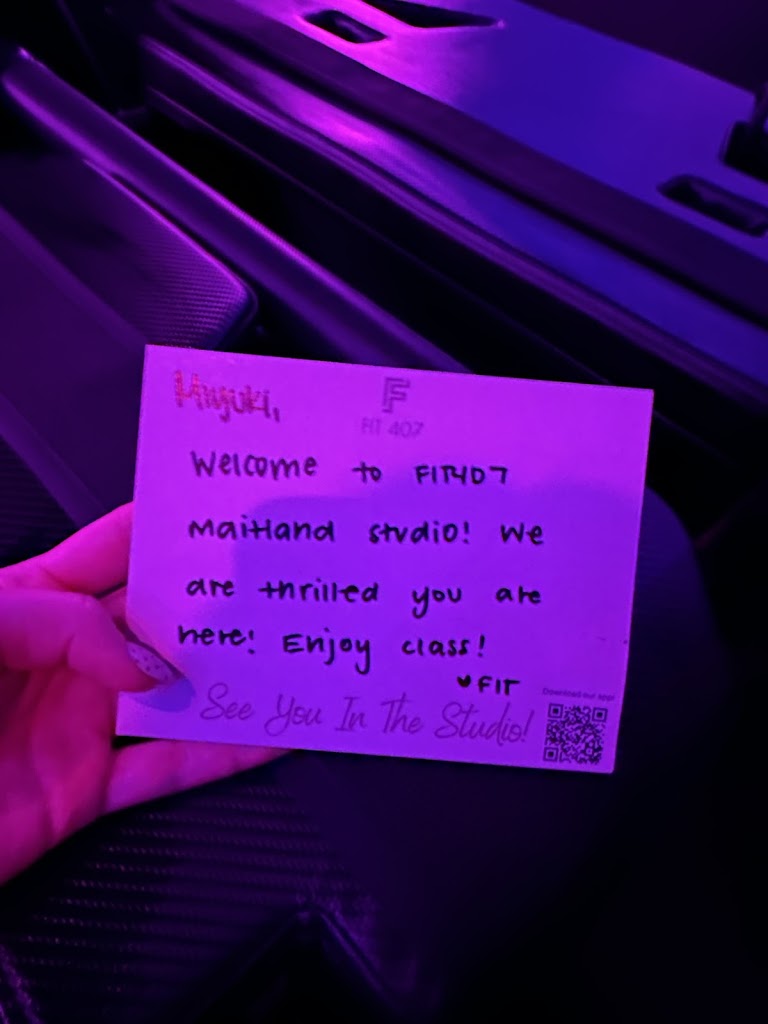 Miyuki,
F
FIT 407
Welcome to FIT407
Maitland studio! We
are thrilled you are
here! Enjoy class!
♥FIT
Download our app!
See You In The Studio!